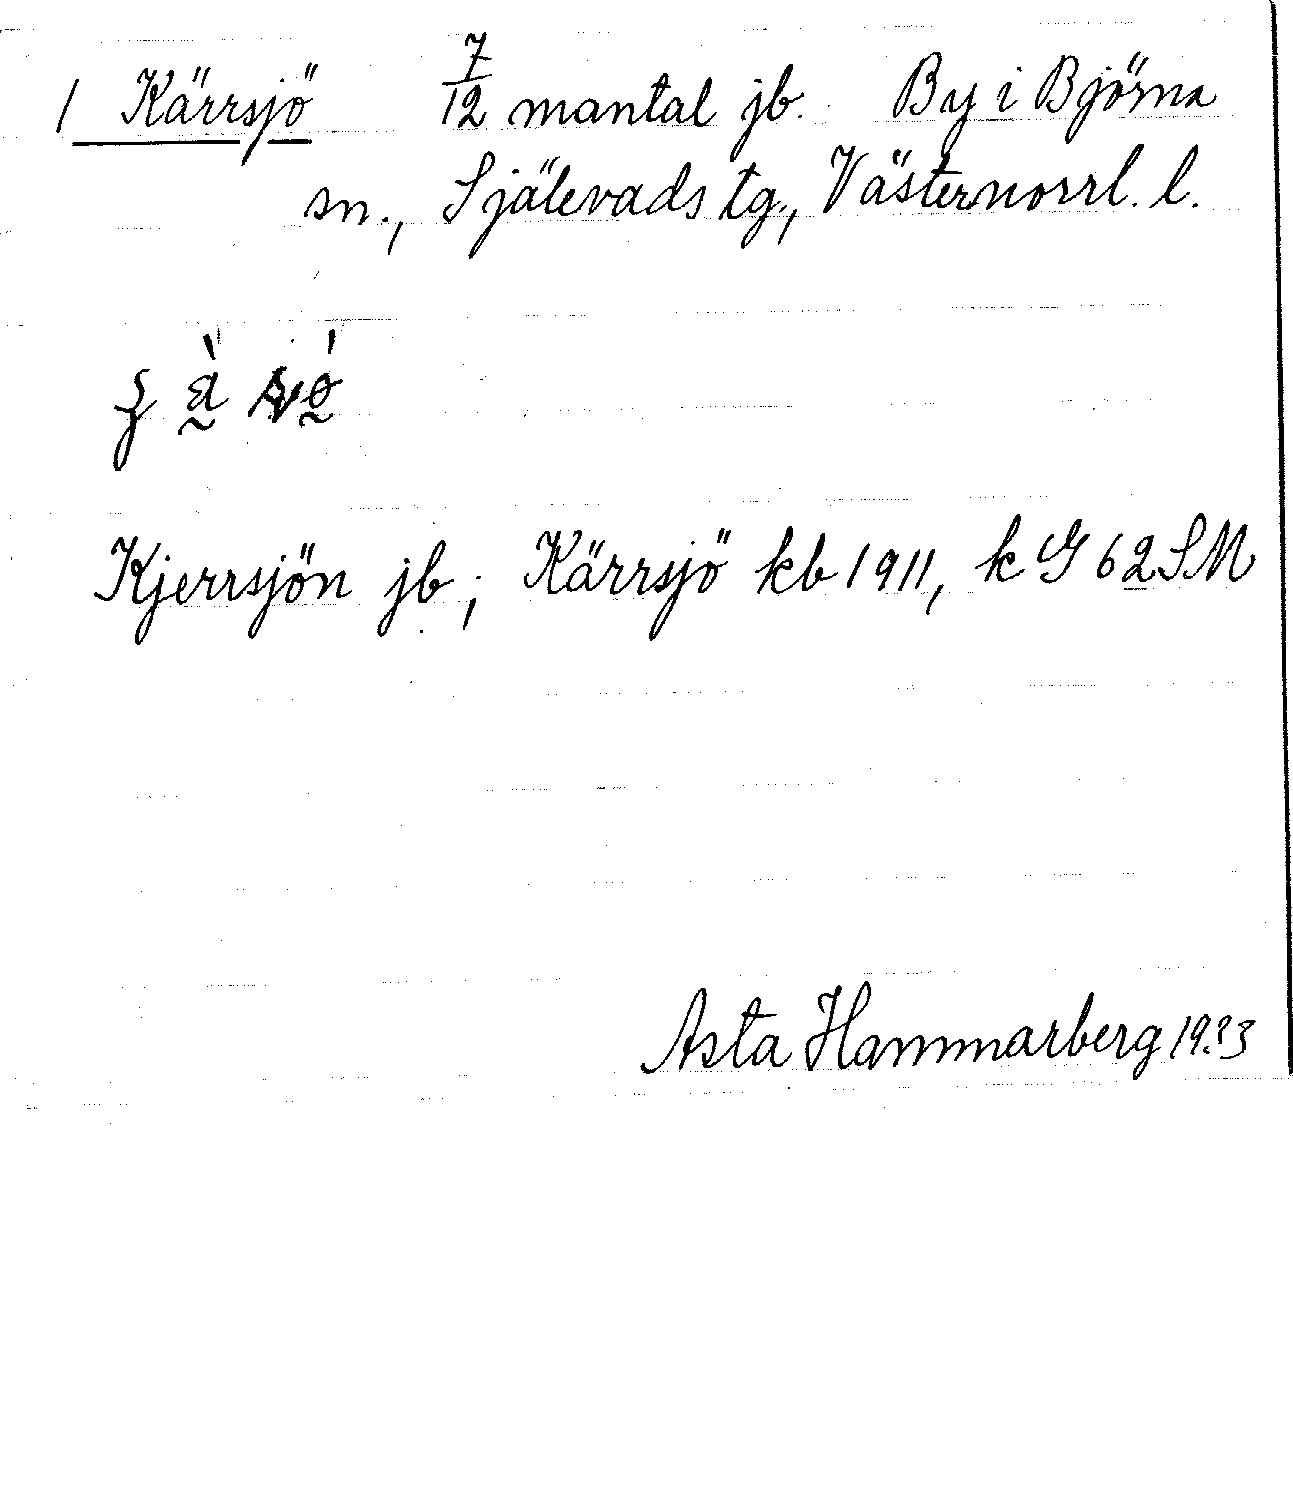 1 Kärrsjö 7/12 mantal jb. By i Björna
sn., Själevads tg., Västernorrl. l.
Kjerrsjön jb; Kärrsjö kb 1911, k G 62 SM
Asta Hammarberg 1933